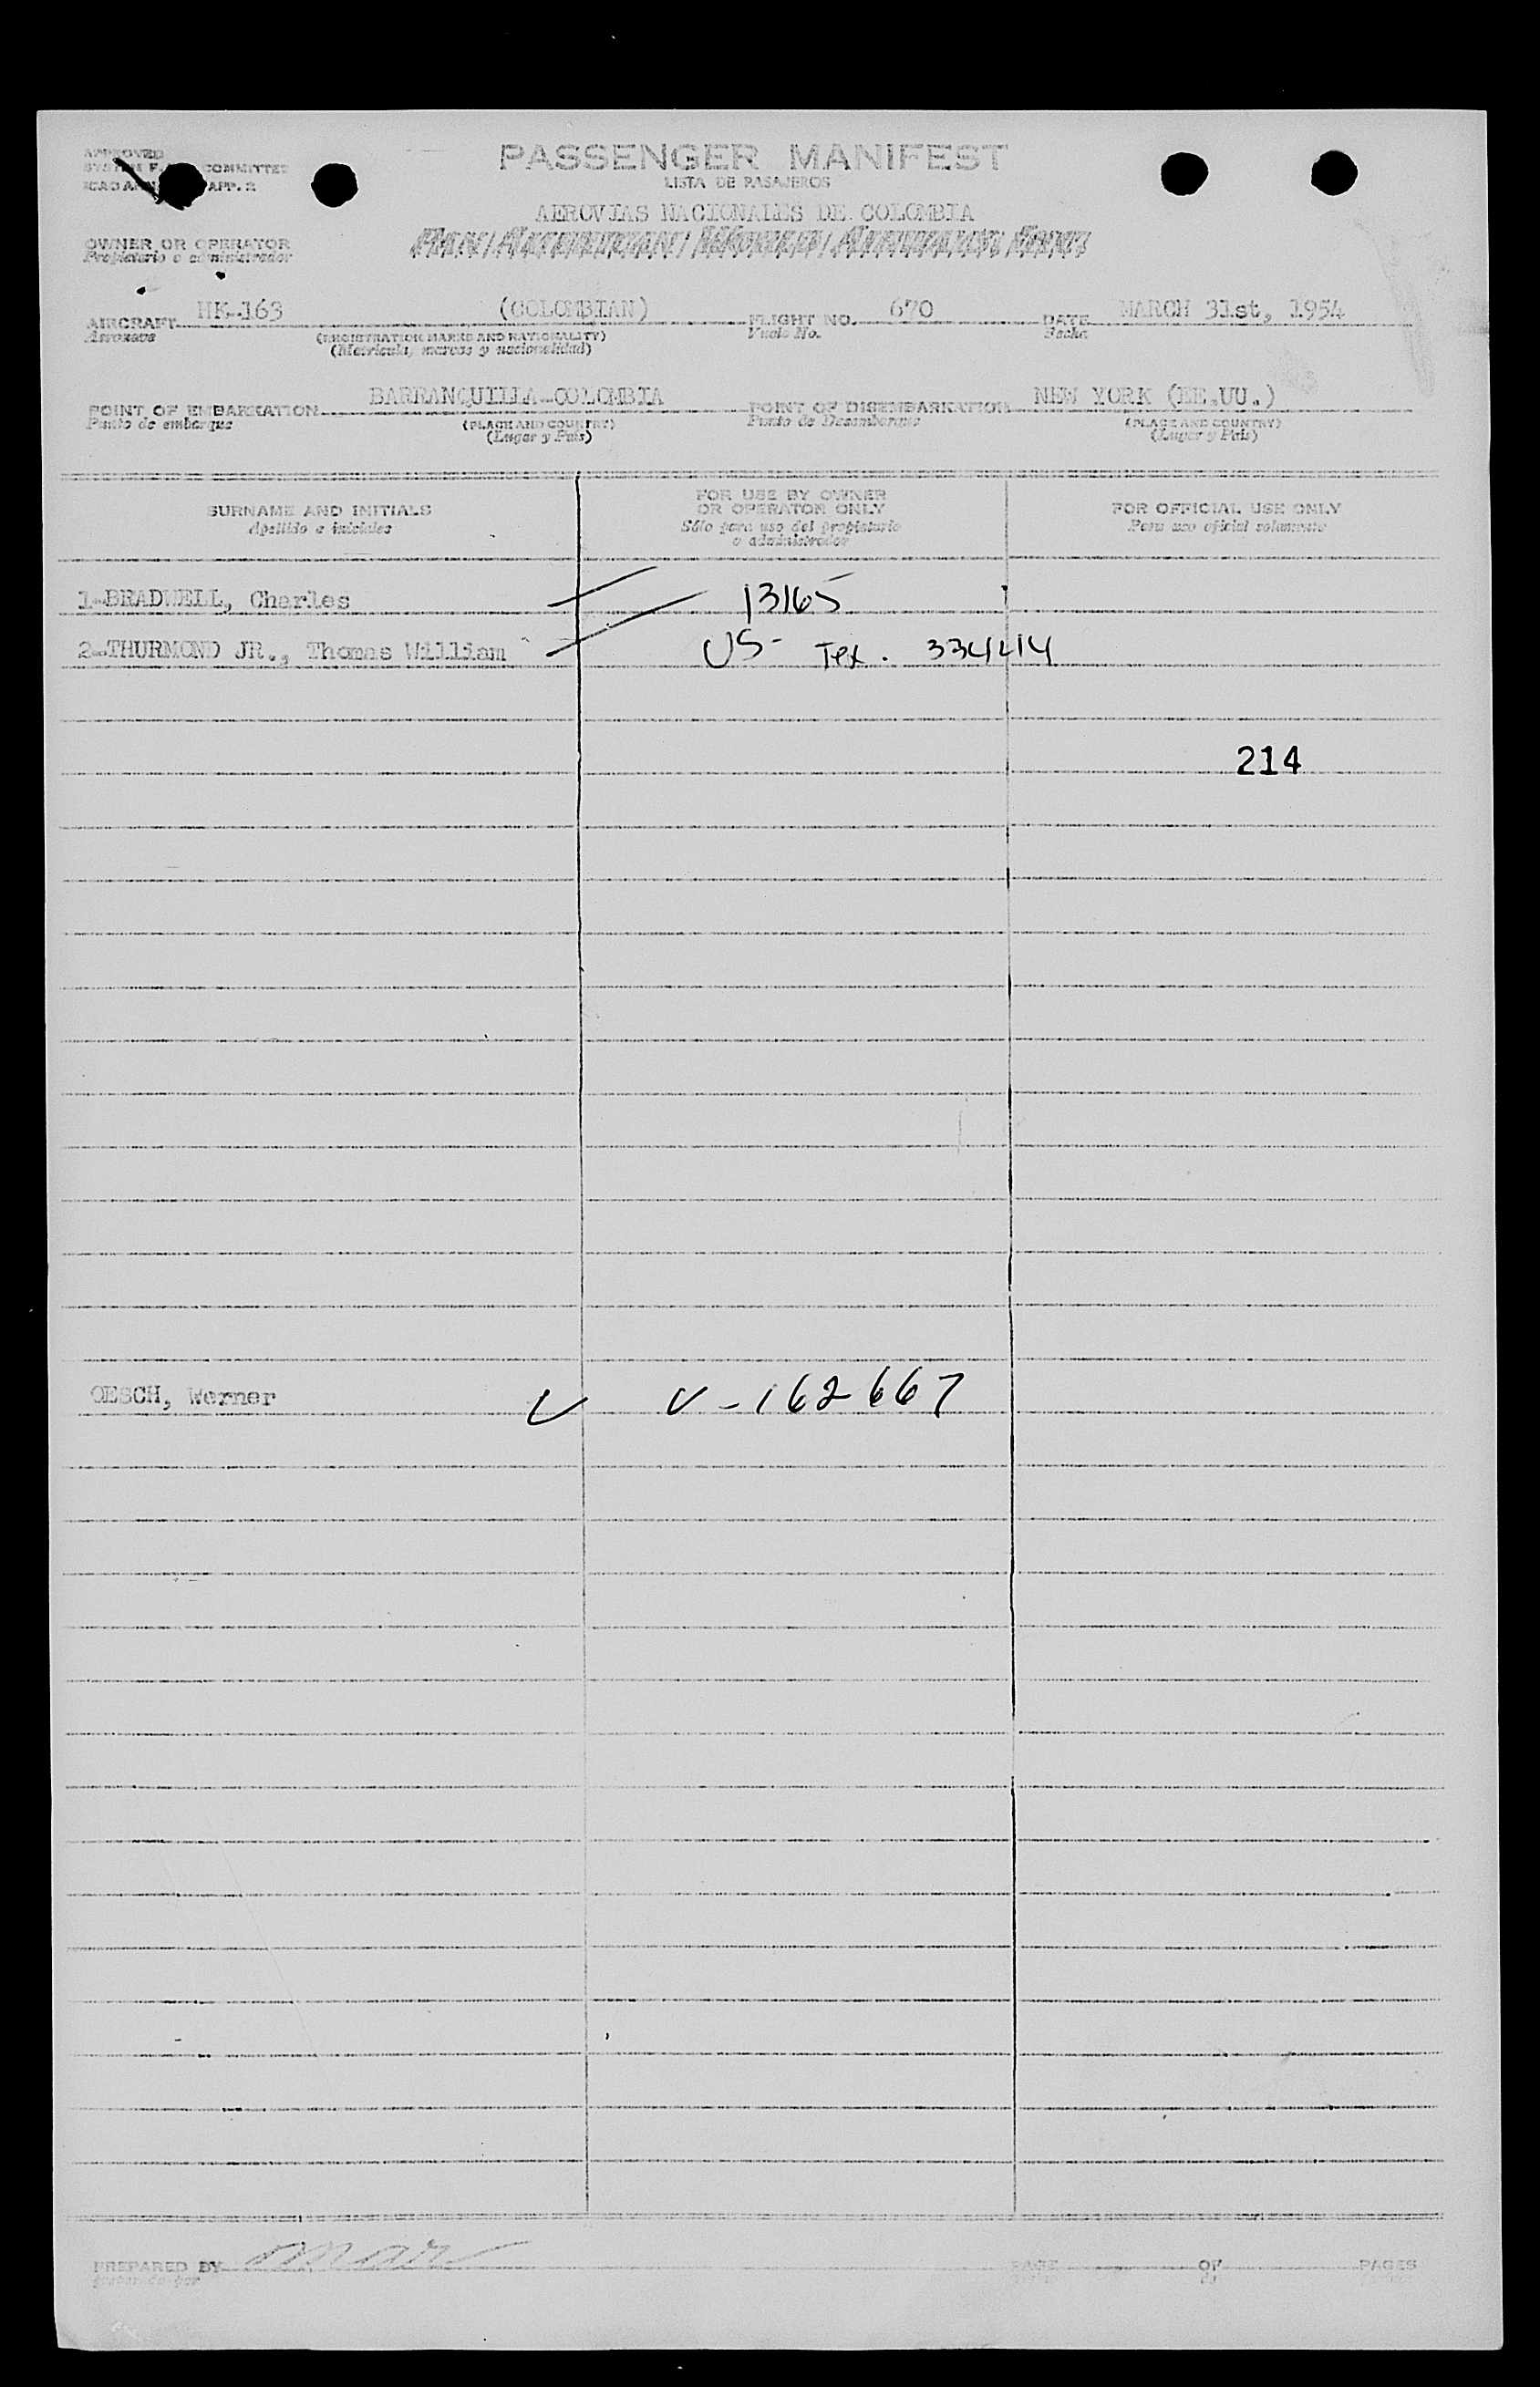 APPROVED
SYSTEM F. COMMITTEE
ICAO APP. 2
PASSENGER MANIFEST
LISTA DE PASAJEROS
AEROVIAS NACIONALES DE COLOMBIA
PAN AMERICAN WORLD AIRWAYS, INC.
OWNER OR OPERATOR
Propietario o administrador
AIRCRAFT HK-163 (COLOMBIAN) FLIGHT NO. 670 DATE MARCH 31st, 1954
Aeronave (REGISTRATION MARKS AND NATIONALITY) Vuelo No. Fecha
(Matrícula, marcas y nacionalidad)
POINT OF EMBARKATION BARRANQUILLA-COLOMBIA POINT OF DISEMBARKATION NEW YORK (EE.UU.)
Punto de embarque (PLACE AND COUNTRY) Punto de Desembarque (PLACE AND COUNTRY)
(Lugar y País) (Lugar y País)
SURNAME AND INITIALS
Apellido e iniciales
FOR USE BY OWNER
OR OPERATOR ONLY
Sólo para uso del propietario
o administrador
FOR OFFICIAL USE ONLY
Para uso oficial solamente
1-BRADWELL, Charles 13165
2-THURMOND JR., Thomas William US- Tex. 334414
214
OESCH, Werner V-162667
PREPARED BY PAGE OF PAGES